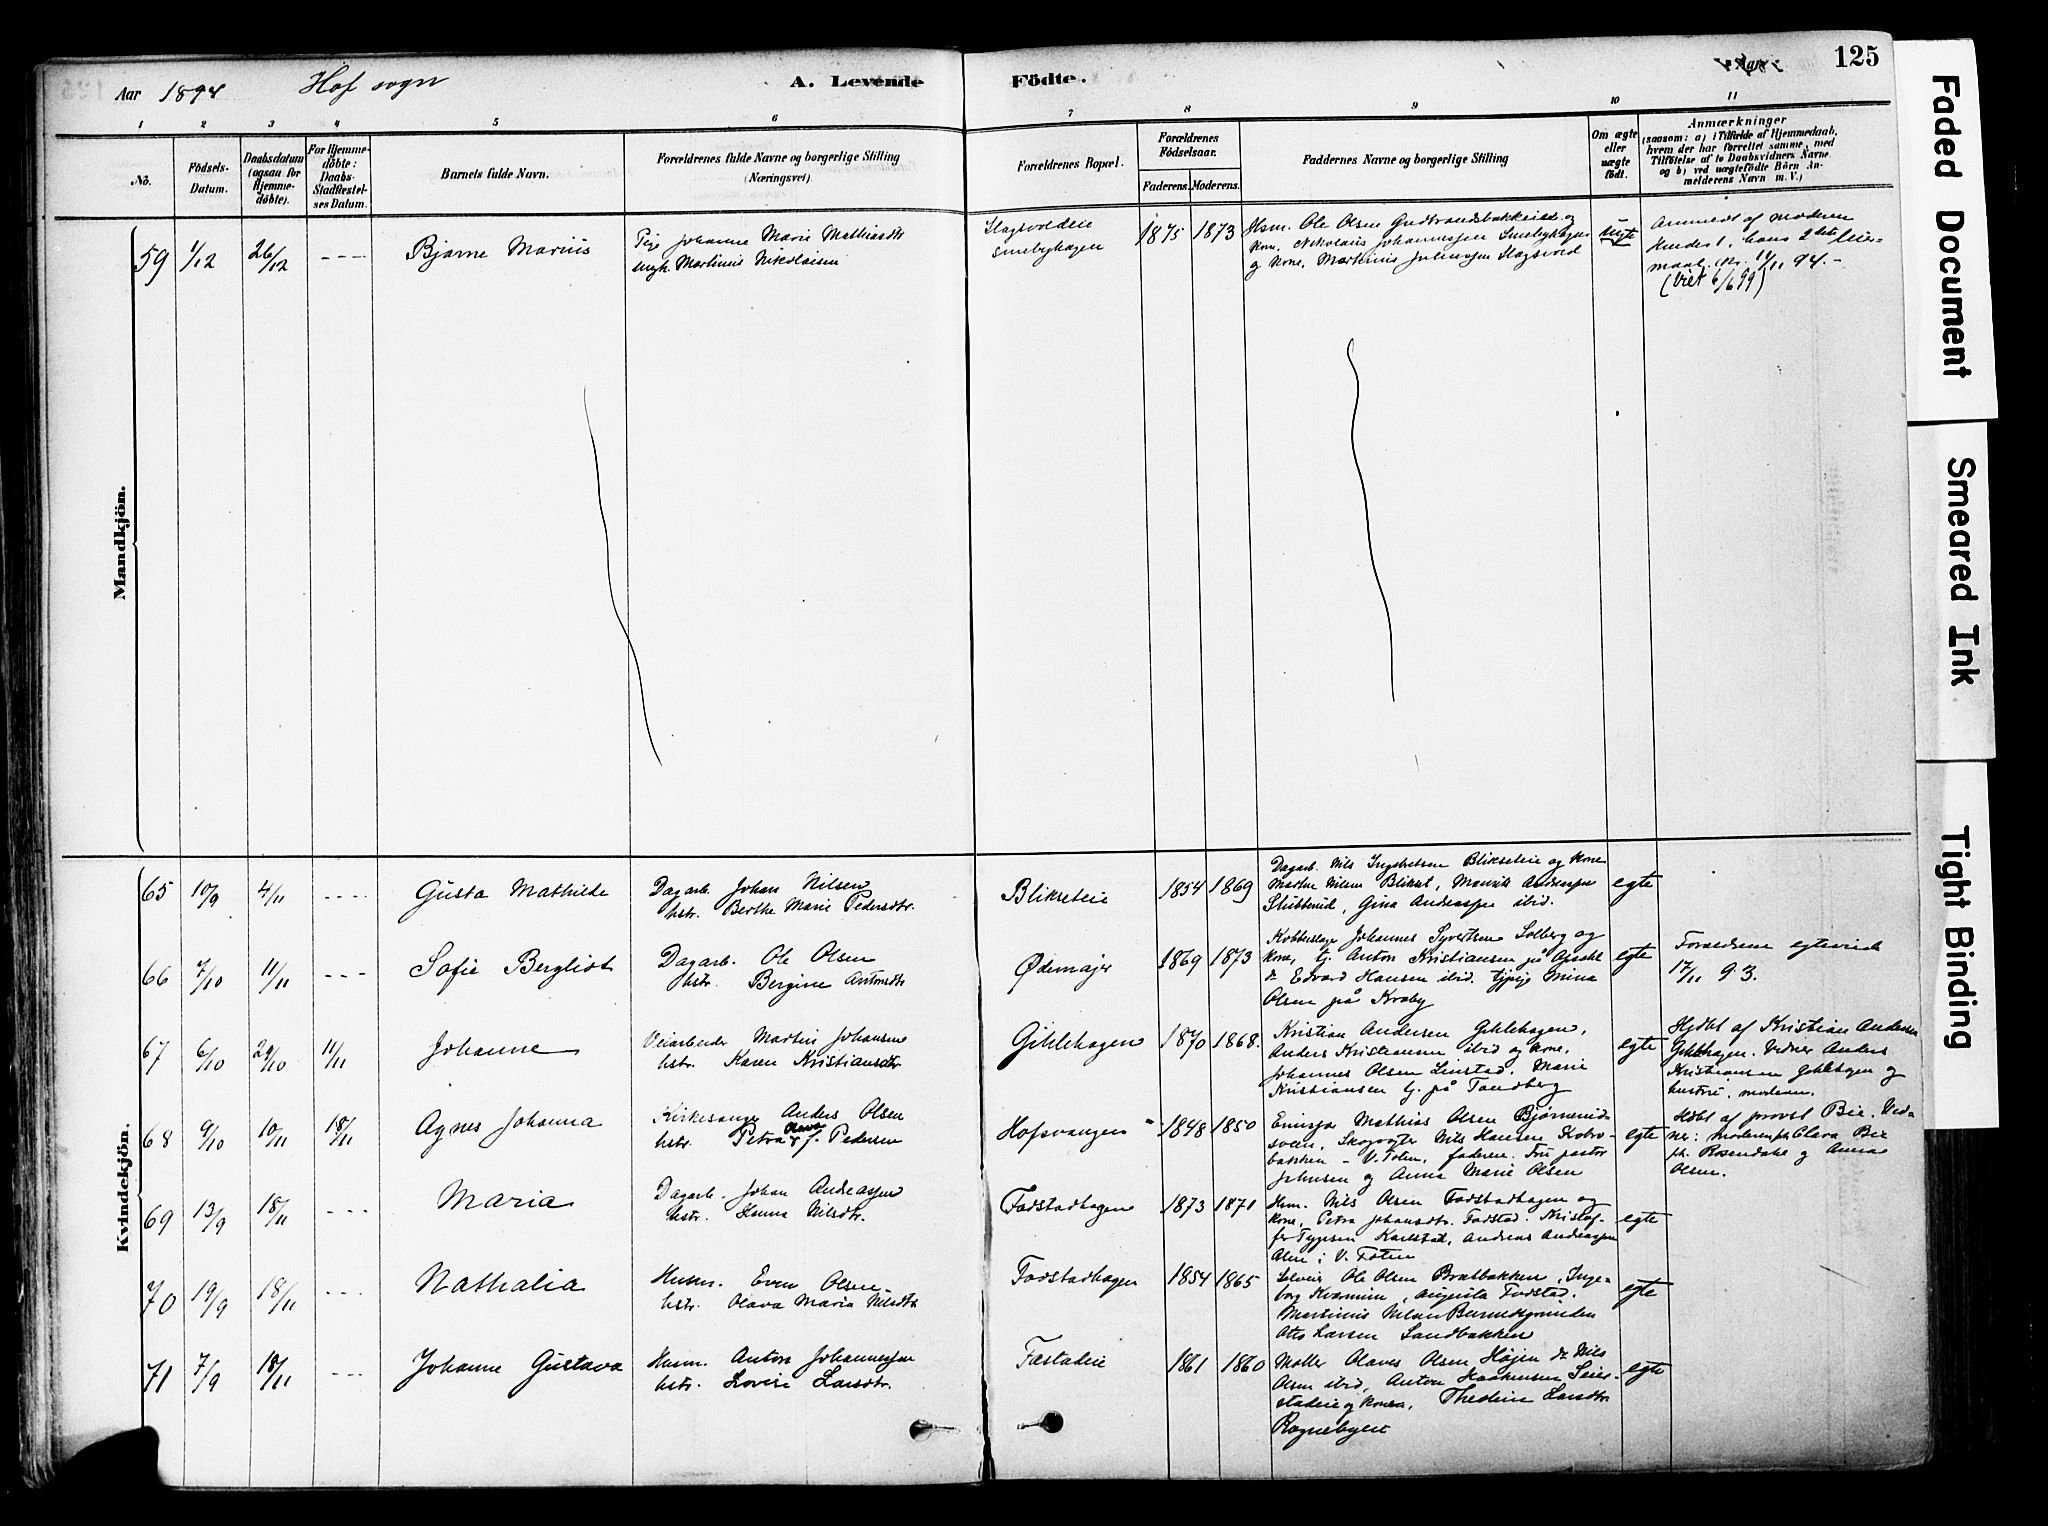 Aar 1894 Hof sogn A. Levende Födte. Aar 125
1 2 3 4 5 6 7 8 9 10 11
No.
Födsels-
Datum.
Daabsdatum
(ogsaa for
Hjemme-
døbte).
For Hjemme-
döbte:
Daabs-
Stadfæstel-
ses Datum.
Barnets fulde Navn.
Forældrenes fulde Navne og borgerlige Stilling
(Næringsvei).
Forældrenes Bopæl.
Forældrenes
Födselsaar.
Faderens. Moderens.
Faddernes Navne og borgerlige Stilling
Om ægte
eller
uægte
födt.
Anmærkninger
(saasom: a) i Tilfælde af Hjemmedaab,
hvem der har forrettet samme, med
Tilföielse af to Daabsvidners Navne
og b) ved uægtefödte Börn An-
melderens Navn m. V.)
Mandkjön.
59 1/12 26/12 Bjarne Marius
Pige Johanne Marie Mathiasdtr
ungk. Martinius Nikolaisen
Slagsvoldeie
Smebyhagen
1875 1873
Hsm. Ole Olsen Gudbrandsbakken og
kone, Nikolais Johannessen Smebyhagen
og kone, Martinus Julinssen Slagsvold
uegte
Anmeldt af moderen
hendes 1, hans 2det leier-
maal. 14/11 94.-
(Viet 6/6 99)
Kvindekjön.
65 10/9 4/11 Gusta Mathilde
Dagarb. Johan Nilsen
hstr. Berthe Marie Pedersdtr.
Blikseteie 1854 1869
Dagarb. Nils Ingebretsen Blikseteie og kone
Marthe Nilsen Blikset, Andreassen
Gina Andreassen ibid.
egte
66 7/10 11/11 Sofie Bergliot
Dagarb. Ole Olsen
hstr. Bergine Antonsdtr
Ødemajer 1869 1873
Kobberslager Johannes Syvertsen Solberg og
kone, tj. Anton Kristiansen på
Edvard Hansen ibid. tjpige Mina
Olsen på Kraby
egte
Foreldrene egteviede
17/11 93.
67 6/10 29/10 11/11 Johanne
Veiarbeider Martin Johansen
hstr. Karen Kristiansdtr
Giklehagen 1870 1868.
Kristian Andersen Giklehagen,
Anders Kristiansen ibid og kone,
Johannes Olsen Linstad, Marie
Kristiansen tj. på Tandberg
egte
Hjdbt af Kristian Andersen
Giklehagen. Vidner Anders
Kristiansen Giklehagen og
hustru, moderen.
68 9/10 10/11 18/11 Agnes Johanna
Kirkesanger Anders Olsen
hstr. Petra Olava f. Pedersen
Hofsvangen 1848 1850
Mathias Olsen
sveen, Skogvogter Nils Hansen
bakken - V. Toten, faderen. Fru pastor
Johnsen og Anna Marie Olsen
egte
Hdbt af provst Bie. Vid-
ner: moderen, Clara Bie
Rosendahl og Anna
Olsen.
69 13/9 18/11 Maria
Dagarb. Johan Andreassen
hstr. Hanna Nilsdtr.
Fodstadhagen 1873 1871
Hsm. Nils Olsen Fodstadhagen og
kone, Petra Johansdtr. Fodstad. Kristof-
fer Karlstad, Andreas Andreassen
Alm i V. Toten
egte
70 19/9 18/11 Nathalia
Husm. Even Olsen
hstr. Olava Maria Nilsdtr
Fodstadhagen 1854 1865
Selveier Ole Olsen Brætbakken, Inge-
borg, Augusta Fodstad.
Martinius Nilsen
Otto Larsen Sandbakken
egte
71 7/9 18/11 Johanne Gustava
Husm. Anton Johannessen
hstr. Lovise Larsdtr.
Fæstadeie 1861 1860
Møller Olaves Olsen Højen Nils
Olsen ibid, Anton Haakensen
stadeie og kone, Theoline Larsdtr
Rognebyeie
egte
Faded Document
Smeared Ink
Tight Binding